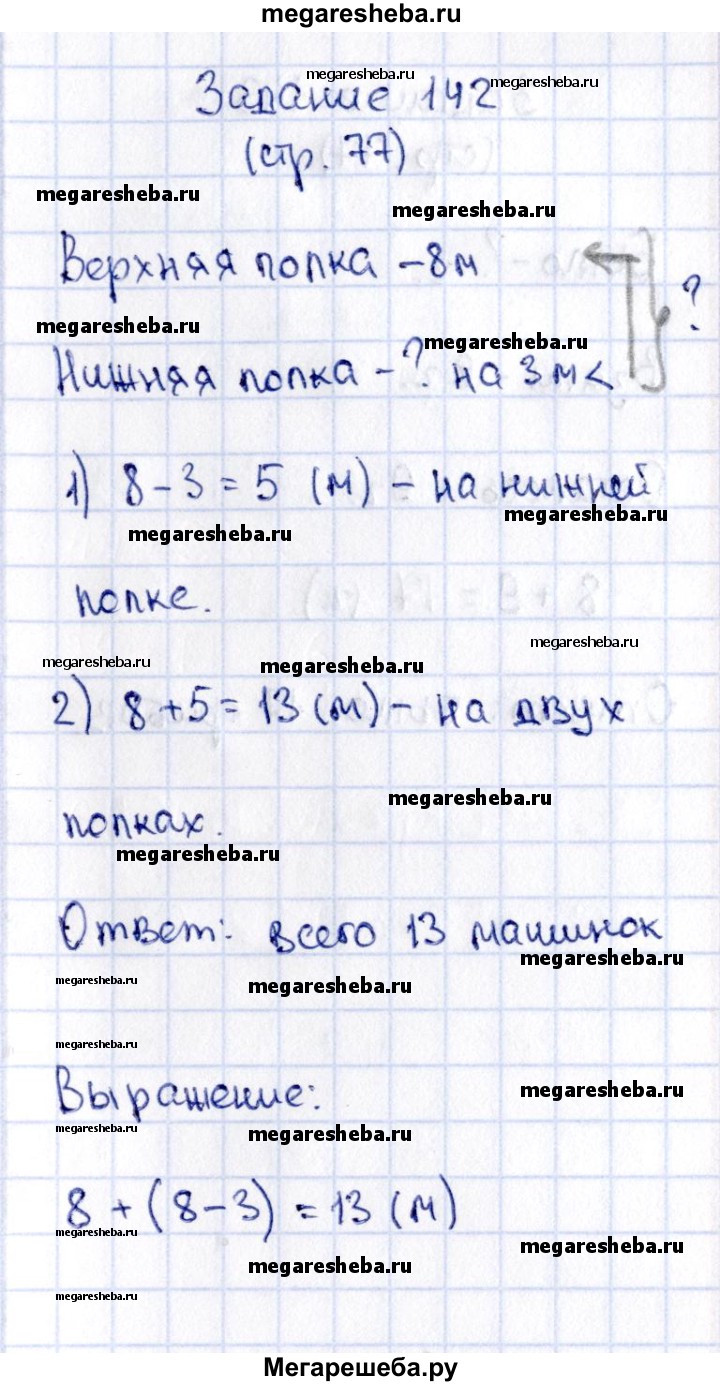 megaresheba.ru
megaresheba.ru
Задание 142 megaresheba.ru
(стр. 77)
megaresheba.ru
megaresheba.ru
Верхняя полка - 8м
?
megaresheba.ru
megaresheba.ru
Нижняя полка - ? на 3 м <
1) 8 - 3 = 5 (м) - на нижней
megaresheba.ru
megaresheba.ru
полке.
8 + 9 = 17 (м)
megaresheba.ru
megaresheba.ru megaresheba.ru
2) 8 + 5 = 13 (м) - на двух
megaresheba.ru
полках.
megaresheba.ru
Ответ: всего 13 машинок
megaresheba.ru
megaresheba.ru megaresheba.ru
megaresheba.ru
Выражение:
megaresheba.ru
megaresheba.ru
megaresheba.ru
8 + (8 - 3) = 13 (м)
megaresheba.ru
megaresheba.ru
megaresheba.ru
megaresheba.ru
Мегарешеба.ру